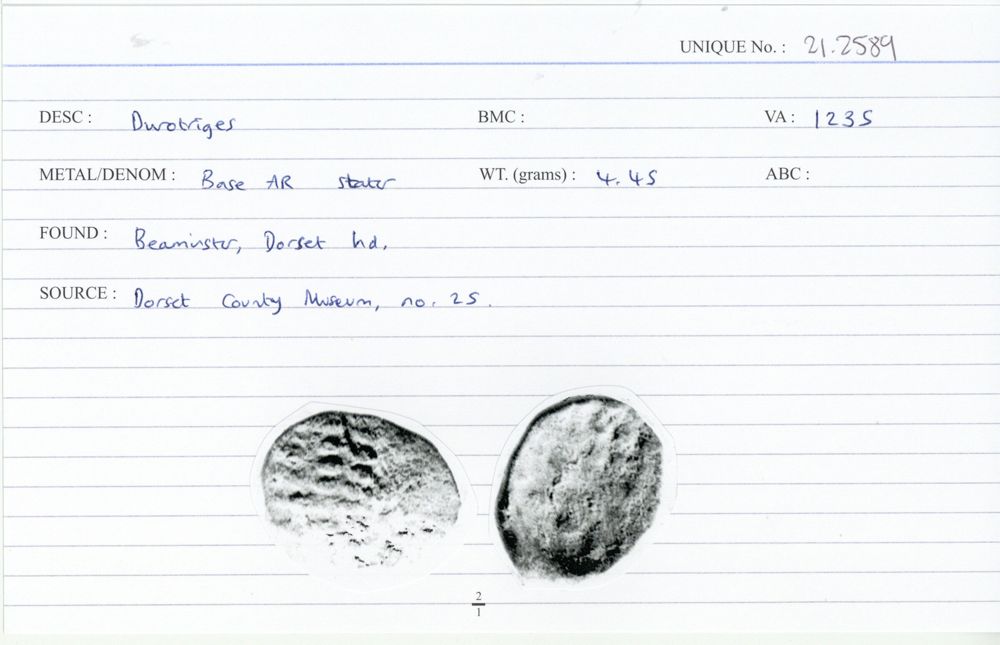 UNIQUE No. : 21.2589
DESC : Durotriges BMC : VA : 1235
METAL/DENOM : Base AR stater WT. (grams) : 4.45 ABC :
FOUND : Beaminster, Dorset hd.
SOURCE : Dorset County Museum, no. 25.
2
1